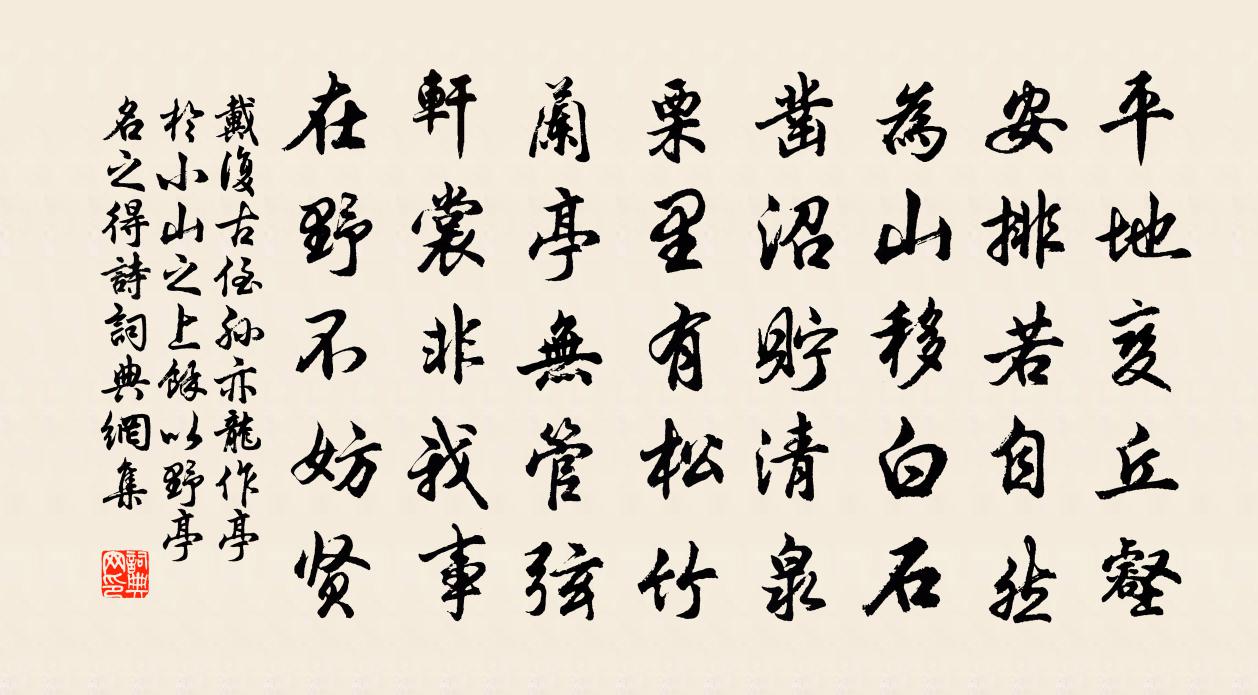 平地變丘壑
安排若自然
為山移白石
鑿沼貯清泉
栗里有松竹
蘭亭無管弦
軒裳非我事
在野不妨贤
戴復古侄孫亦龍作亭
於小山之上餘以野亭
名之得詩詞典網集
詞典
网印